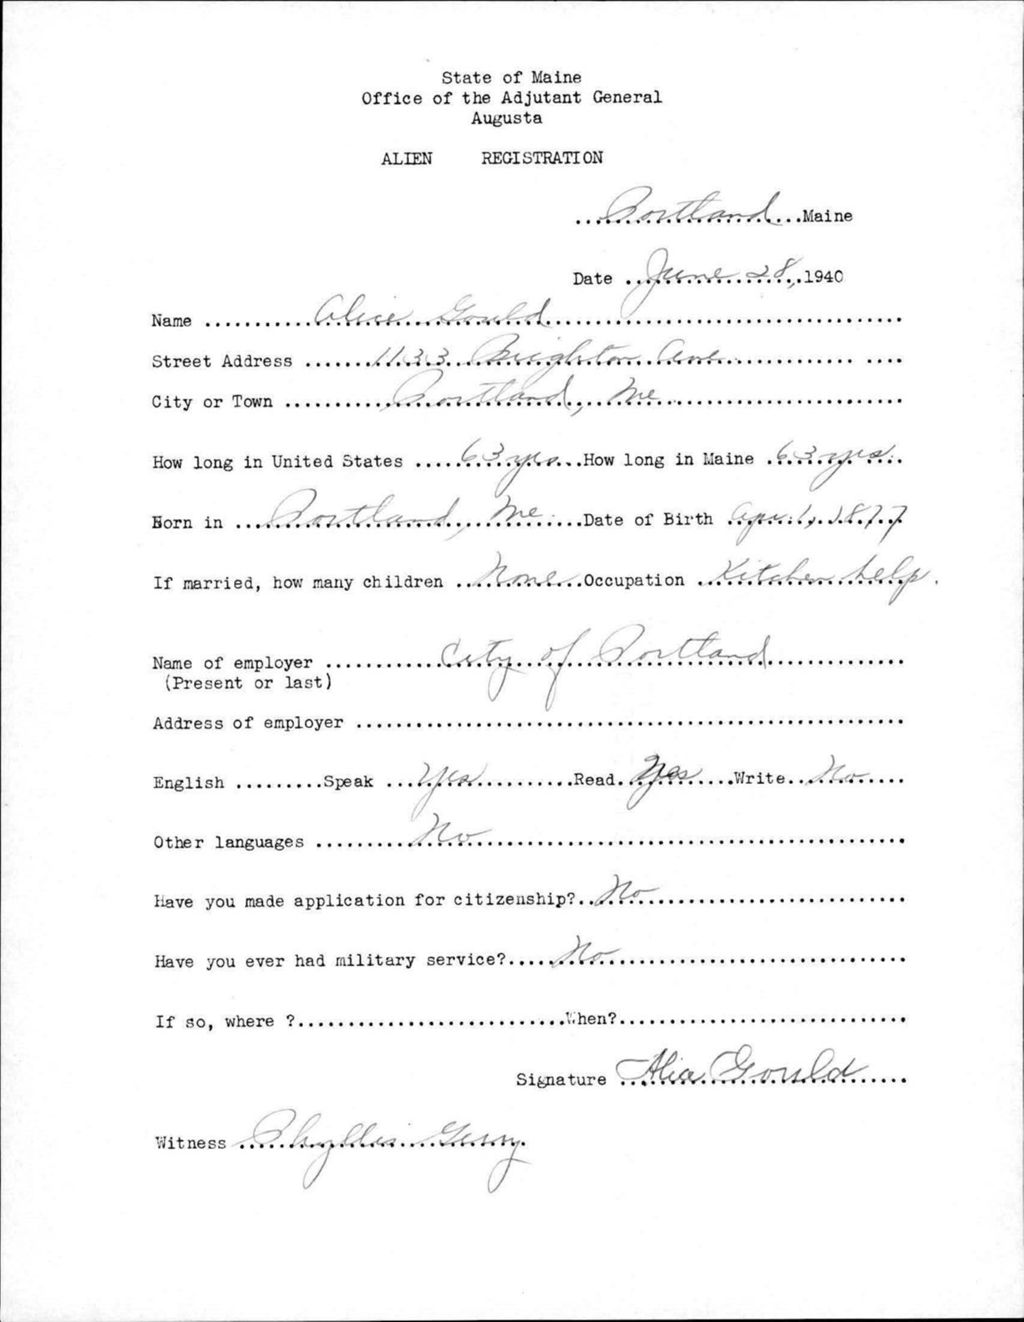 State of Maine
Office of the Adjutant General
Augusta
ALIEN REGISTRATION
Portland Maine
Date June 28, 1940
Name Alice Gould
Street Address 1133 Brighton Ave
City or Town Portland, Me
How long in United States 63 yrs How long in Maine 63 yrs.
Born in Portland, Me. Date of Birth Apr. 1, 1877
If married, how many children None Occupation Kitchen help.
Name of employer City of Portland
(Present or last)
Address of employer
English Speak Yes Read Yes Write No
Other languages No
Have you made application for citizenship? No
Have you ever had military service? No
If so, where ? When?
Signature Alice Gould
Witness Phyllis Gerry